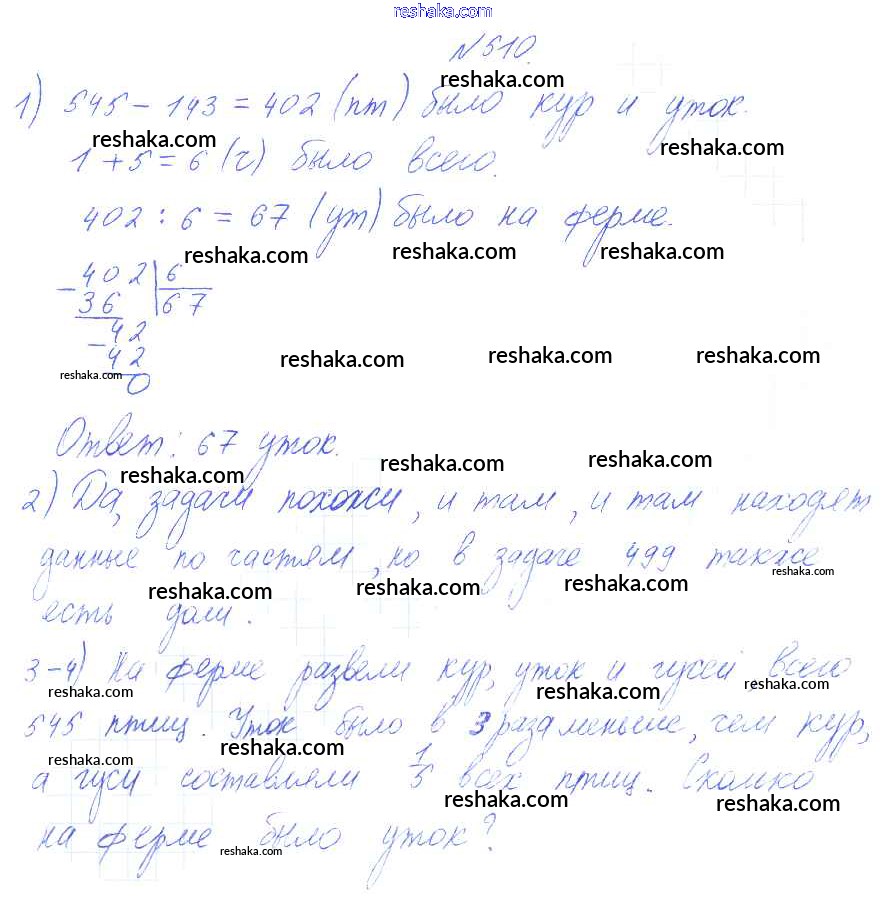 reshaka.com
№510.
reshaka.com
1) 545 - 143 = 402 (пт) было кур и уток.
reshaka.com reshaka.com
1 + 5 = 6 (ч) было всего.
402 : 6 = 67 (ут) было на ферме.
reshaka.com reshaka.com reshaka.com
- 402 | 6
36 67
- 42
42
0
reshaka.com reshaka.com reshaka.com reshaka.com
Ответ: 67 уток.
reshaka.com reshaka.com reshaka.com
2) Да, задачи похожи, и там, и там находят
данные по частям, но в задаче 499 также
reshaka.com reshaka.com reshaka.com reshaka.com
есть доли.
3-4) На ферме развели кур, уток и гусей, всего
reshaka.com reshaka.com reshaka.com
545 птиц. Уток было в 3 раза меньше, чем кур,
reshaka.com reshaka.com
а гуси составляли 1/5 всех птиц. Сколько
reshaka.com reshaka.com
на ферме было уток?
reshaka.com